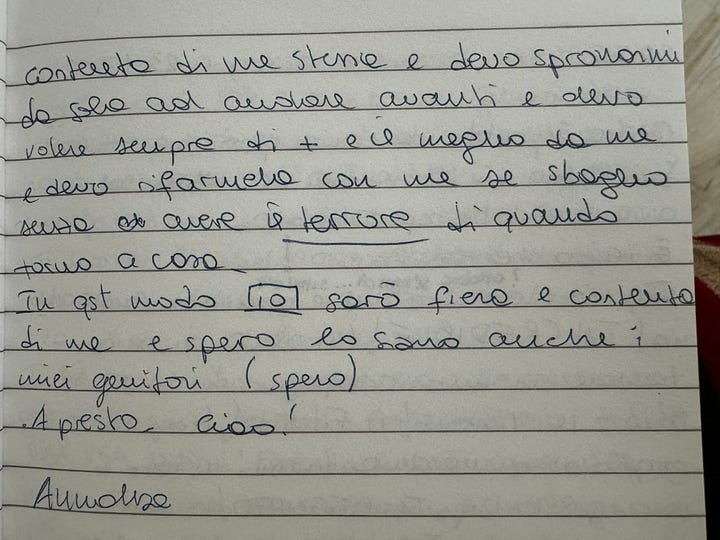 contenta di me stessa e devo spronarmi
da sola ad andare avanti e devo
volere sempre di + e il meglio da me
e devo rifarmela con me se sbaglio
senza avere il terrore di quando
torno a casa_
In qst modo io sarò fiera e contenta
di me e spero lo siano anche i
miei genitori (spero)
A presto_ ciao!
Annalisa